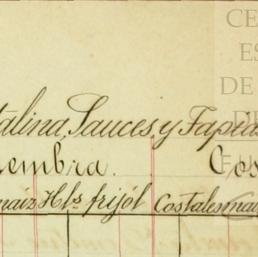 CE
ES
DE
talina, Sauces, y Tapia
iembra. Cos
maiz Hls frijol Costales mai